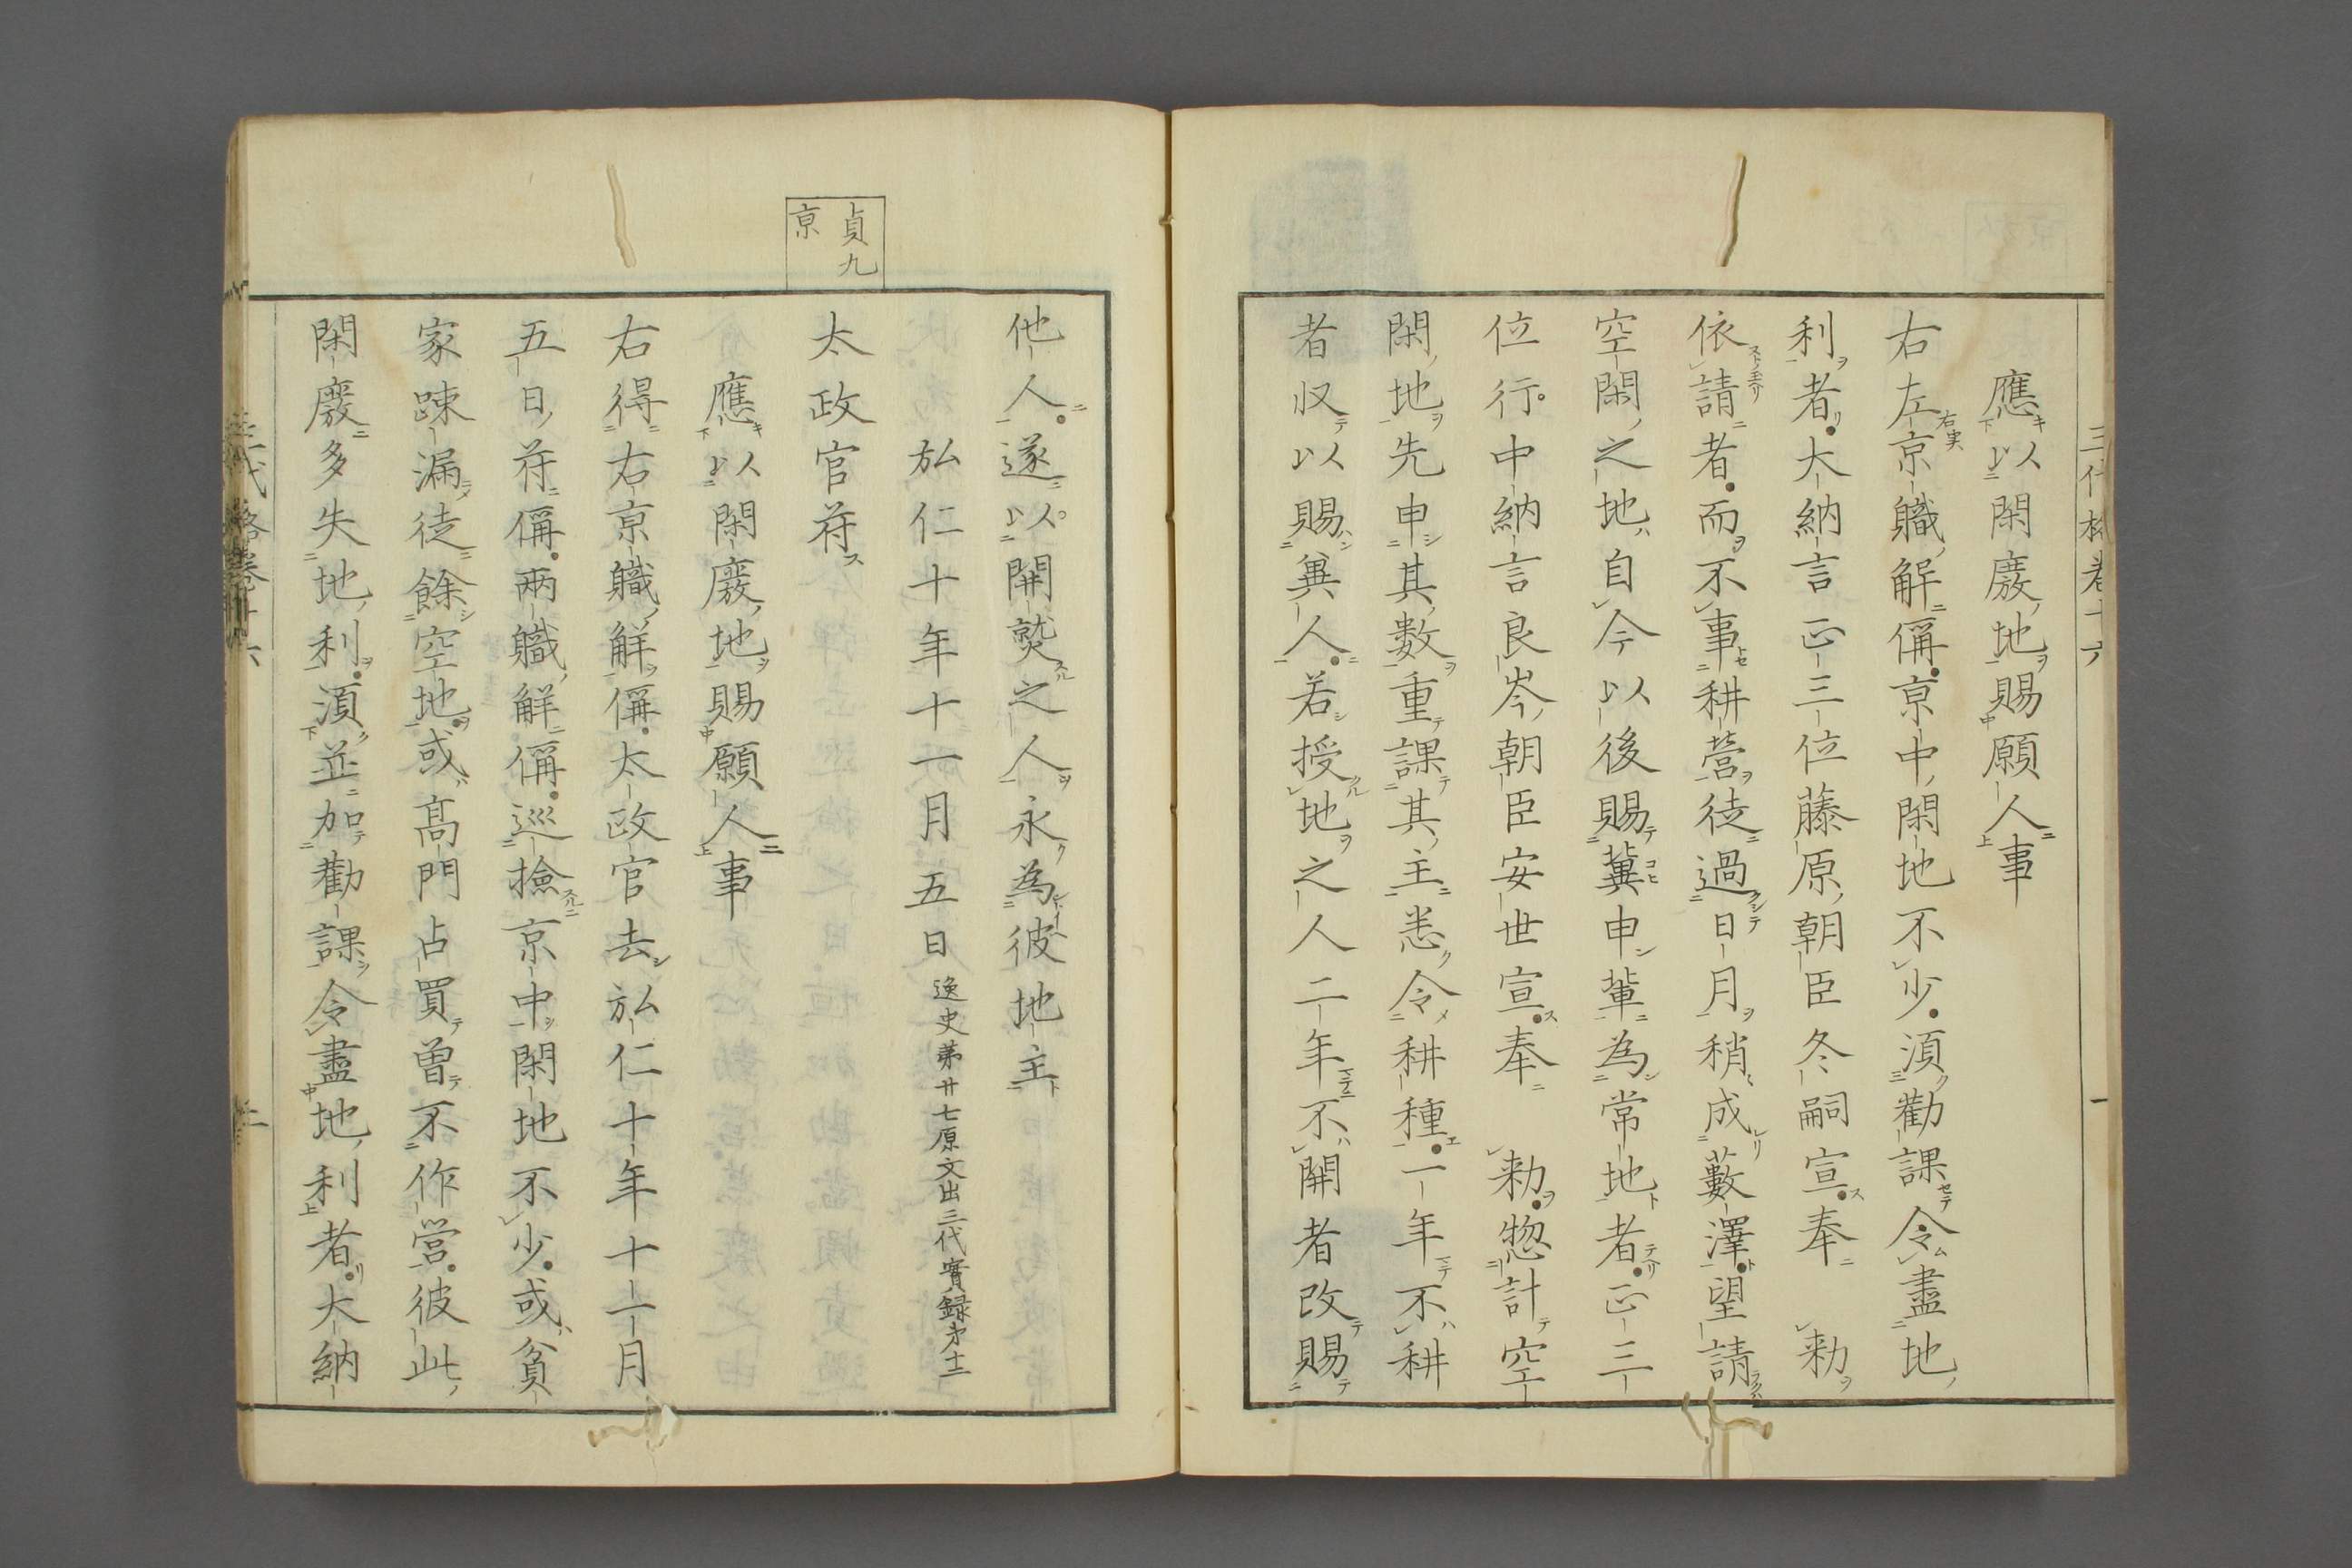 三代格卷十六
一
應以閑廢地賜願人事
右左京職解偁京中閑地不少湏勸課令盡地
右実
利者大納言正三位藤原朝臣冬嗣宣奉 勅
依請者而不事耕営徒過日月稍成藪澤望請
空閑之地自今以後賜冀申輩為常地者正三
位行中納言良岑朝臣安世宣奉 勅惣計空
閑地先申其数重課其主悉令耕種一年不耕
者収以賜冀人若授地之人二年不開者改賜
他人遂以開熨之人永為彼地主
弘仁十年十一月五日 逸史第廿七原文出三代實録第十二
貞九
京
太政官符
應以閑廢地賜願人事
右得右京職解偁太政官去弘仁十年十一月
五日符偁兩職解偁巡撿京中閑地不少或貧
家踈漏徒餘空地或髙門占買曽不作営彼此
閑廢多失地利湏並加勸課令盡地利者大納
三代格卷十六
二